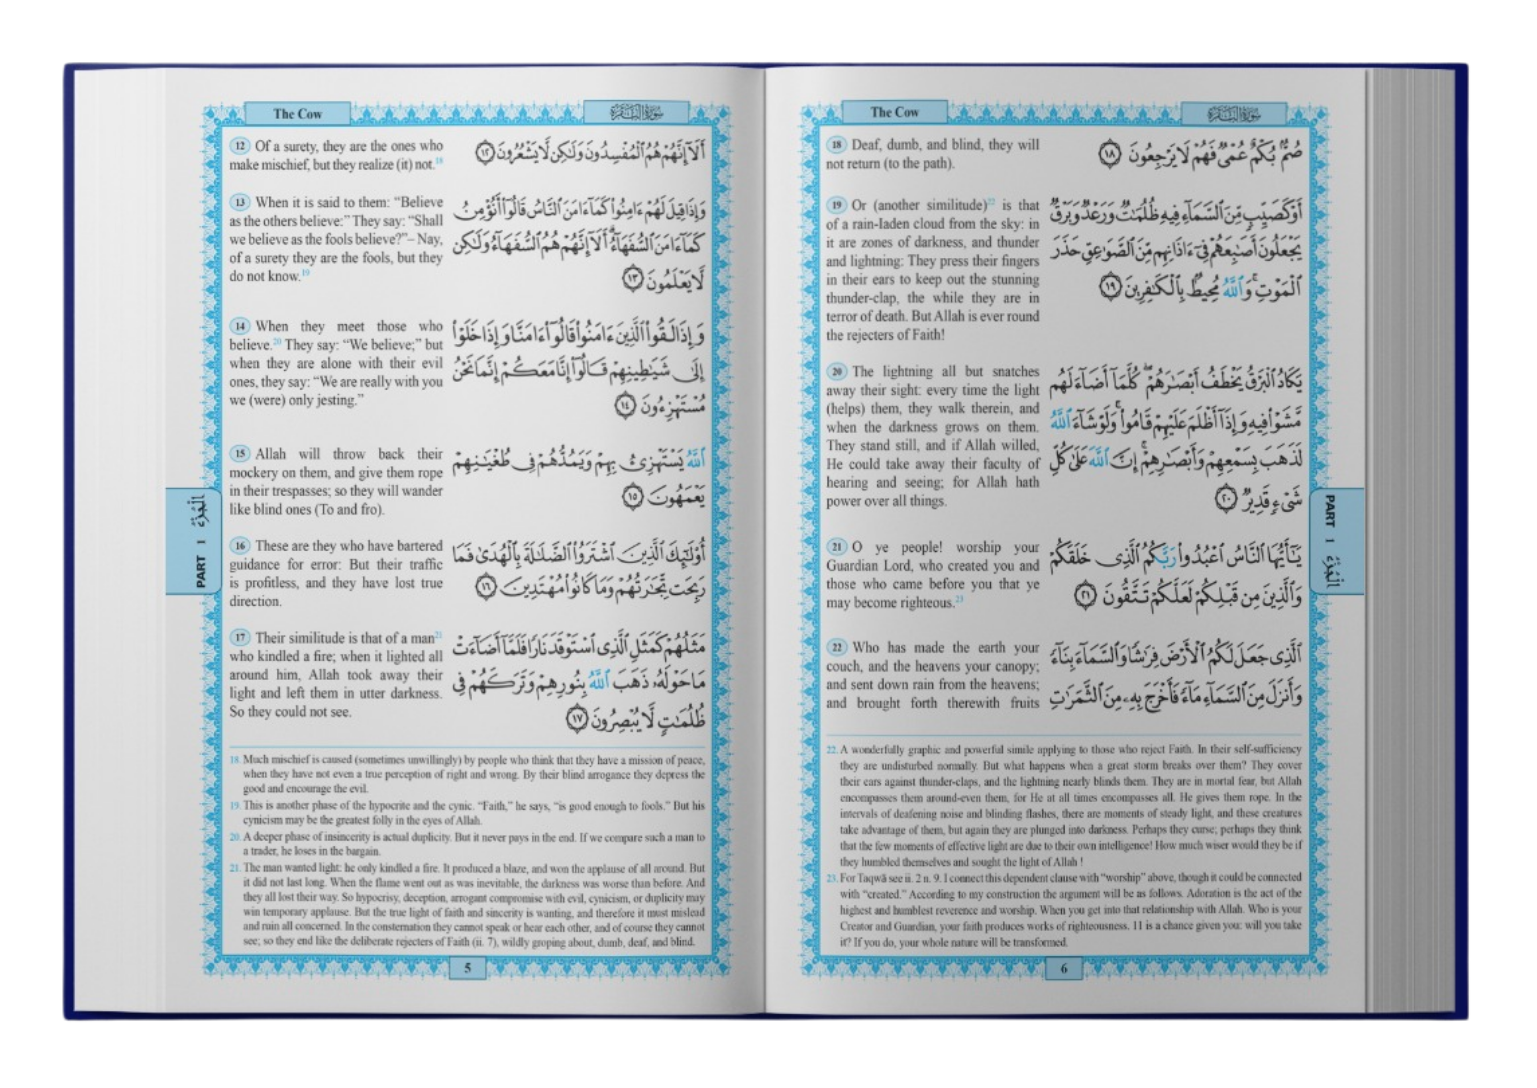 The Cow
سورة البقرة
12 Of a surety, they are the ones who
make mischief, but they realize (it) not.18
أَلَآ إِنَّهُمْ هُمُ ٱلْمُفْسِدُونَ وَلَٰكِن لَّا يَشْعُرُونَ ١٢
13 When it is said to them: “Believe
as the others believe:” They say: “Shall
we believe as the fools believe?”– Nay,
of a surety they are the fools, but they
do not know.19
وَإِذَا قِيلَ لَهُمْ ءَامِنُوا۟ كَمَآ ءَامَنَ ٱلنَّاسُ قَالُوٓا۟ أَنُؤْمِنُ
كَمَآ ءَامَنَ ٱلسُّفَهَآءُ ۗ أَلَآ إِنَّهُمْ هُمُ ٱلسُّفَهَآءُ وَلَٰكِن
لَّا يَعْلَمُونَ ١٣
14 When they meet those who
believe.20 They say: “We believe;” but
when they are alone with their evil
ones, they say: “We are really with you
we (were) only jesting.”
وَإِذَا لَقُوا۟ ٱلَّذِينَ ءَامَنُوا۟ قَالُوٓا۟ ءَامَنَّا وَإِذَا خَلَوْا۟
إِلَىٰ شَيَٰطِينِهِمْ قَالُوٓا۟ إِنَّا مَعَكُمْ إِنَّمَا نَحْنُ
مُسْتَهْزِءُونَ ١٤
15 Allah will throw back their
mockery on them, and give them rope
in their trespasses; so they will wander
like blind ones (To and fro).
ٱللَّهُ يَسْتَهْزِئُ بِهِمْ وَيَمُدُّهُمْ فِى طُغْيَٰنِهِمْ
يَعْمَهُونَ ١٥
16 These are they who have bartered
guidance for error: But their traffic
is profitless, and they have lost true
direction.
أُو۟لَٰٓئِكَ ٱلَّذِينَ ٱشْتَرَوُا۟ ٱلضَّلَٰلَةَ بِٱلْهُدَىٰ فَمَا
رَبِحَت تِّجَٰرَتُهُمْ وَمَا كَانُوا۟ مُهْتَدِينَ ١٦
17 Their similitude is that of a man21
who kindled a fire; when it lighted all
around him, Allah took away their
light and left them in utter darkness.
So they could not see.
مَثَلُهُمْ كَمَثَلِ ٱلَّذِى ٱسْتَوْقَدَ نَارًا فَلَمَّآ أَضَآءَتْ
مَا حَوْلَهُۥ ذَهَبَ ٱللَّهُ بِنُورِهِمْ وَتَرَكَهُمْ فِى
ظُلُمَٰتٍ لَّا يُبْصِرُونَ ١٧
18. Much mischief is caused (sometimes unwillingly) by people who think that they have a mission of peace,
when they have not even a true perception of right and wrong. By their blind arrogance they depress the
good and encourage the evil.
19. This is another phase of the hypocrite and the cynic. “Faith,” he says, “is good enough to fools.” But his
cynicism may be the greatest folly in the eyes of Allah.
20. A deeper phase of insincerity is actual duplicity. But it never pays in the end. If we compare such a man to
a trader, he loses in the bargain.
21. The man wanted light: he only kindled a fire. It produced a blaze, and won the applause of all around. But
it did not last long. When the flame went out as was inevitable, the darkness was worse than before. And
they all lost their way. So hypocrisy, deception, arrogant compromise with evil, cynicism, or duplicity may
win temporary applause. But the true light of faith and sincerity is wanting, and therefore it must mislead
and ruin all concerned. In the consternation they cannot speak or hear each other, and of course they cannot
see; so they end like the deliberate rejecters of Faith (ii. 7), wildly groping about, dumb, deaf, and blind.
5
PART ١ الْجُزْءُ
The Cow
سورة البقرة
18 Deaf, dumb, and blind, they will
not return (to the path).
صُمٌّۢ بُكْمٌ عُمْىٌ فَهُمْ لَا يَرْجِعُونَ ١٨
19 Or (another similitude)22 is that
of a rain-laden cloud from the sky: in
it are zones of darkness, and thunder
and lightning: They press their fingers
in their ears to keep out the stunning
thunder-clap, the while they are in
terror of death. But Allah is ever round
the rejecters of Faith!
أَوْ كَصَيِّبٍ مِّنَ ٱلسَّمَآءِ فِيهِ ظُلُمَٰتٌ وَرَعْدٌ وَبَرْقٌ
يَجْعَلُونَ أَصَٰبِعَهُمْ فِىٓ ءَاذَانِهِم مِّنَ ٱلصَّوَٰعِقِ حَذَرَ
ٱلْمَوْتِ ۚ وَٱللَّهُ مُحِيطٌۢ بِٱلْكَٰفِرِينَ ١٩
20 The lightning all but snatches
away their sight: every time the light
(helps) them, they walk therein, and
when the darkness grows on them.
They stand still, and if Allah willed,
He could take away their faculty of
hearing and seeing; for Allah hath
power over all things.
يَكَادُ ٱلْبَرْقُ يَخْطَفُ أَبْصَٰرَهُمْ ۖ كُلَّمَآ أَضَآءَ لَهُم
مَّشَوْا۟ فِيهِ وَإِذَآ أَظْلَمَ عَلَيْهِمْ قَامُوا۟ ۚ وَلَوْ شَآءَ ٱللَّهُ
لَذَهَبَ بِسَمْعِهِمْ وَأَبْصَٰرِهِمْ ۚ إِنَّ ٱللَّهَ عَلَىٰ كُلِّ
شَىْءٍ قَدِيرٌ ٢٠
21 O ye people! worship your
Guardian Lord, who created you and
those who came before you that ye
may become righteous.23
يَٰٓأَيُّهَا ٱلنَّاسُ ٱعْبُدُوا۟ رَبَّكُمُ ٱلَّذِى خَلَقَكُمْ
وَٱلَّذِينَ مِن قَبْلِكُمْ لَعَلَّكُمْ تَتَّقُونَ ٢١
22 Who has made the earth your
couch, and the heavens your canopy;
and sent down rain from the heavens;
and brought forth therewith fruits
ٱلَّذِى جَعَلَ لَكُمُ ٱلْأَرْضَ فِرَٰشًا وَٱلسَّمَآءَ بِنَآءً
وَأَنزَلَ مِنَ ٱلسَّمَآءِ مَآءً فَأَخْرَجَ بِهِۦ مِنَ ٱلثَّمَرَٰتِ
22. A wonderfully graphic and powerful simile applying to those who reject Faith. In their self-sufficiency
they are undisturbed normally. But what happens when a great storm breaks over them? They cover
their ears against thunder-claps, and the lightning nearly blinds them. They are in mortal fear, but Allah
encompasses them around-even them, for He at all times encompasses all. He gives them rope. In the
intervals of deafening noise and blinding flashes, there are moments of steady light, and these creatures
take advantage of them, but again they are plunged into darkness. Perhaps they curse; perhaps they think
that the few moments of effective light are due to their own intelligence! How much wiser would they be if
they humbled themselves and sought the light of Allah !
23. For Taqwā see ii. 2 n. 9. I connect this dependent clause with “worship” above, though it could be connected
with “created.” According to my construction the argument will be as follows. Adoration is the act of the
highest and humblest reverence and worship. When you get into that relationship with Allah. Who is your
Creator and Guardian, your faith produces works of righteousness. 11 is a chance given you: will you take
it? If you do, your whole nature will be transformed.
6
PART ١ الْجُزْءُ